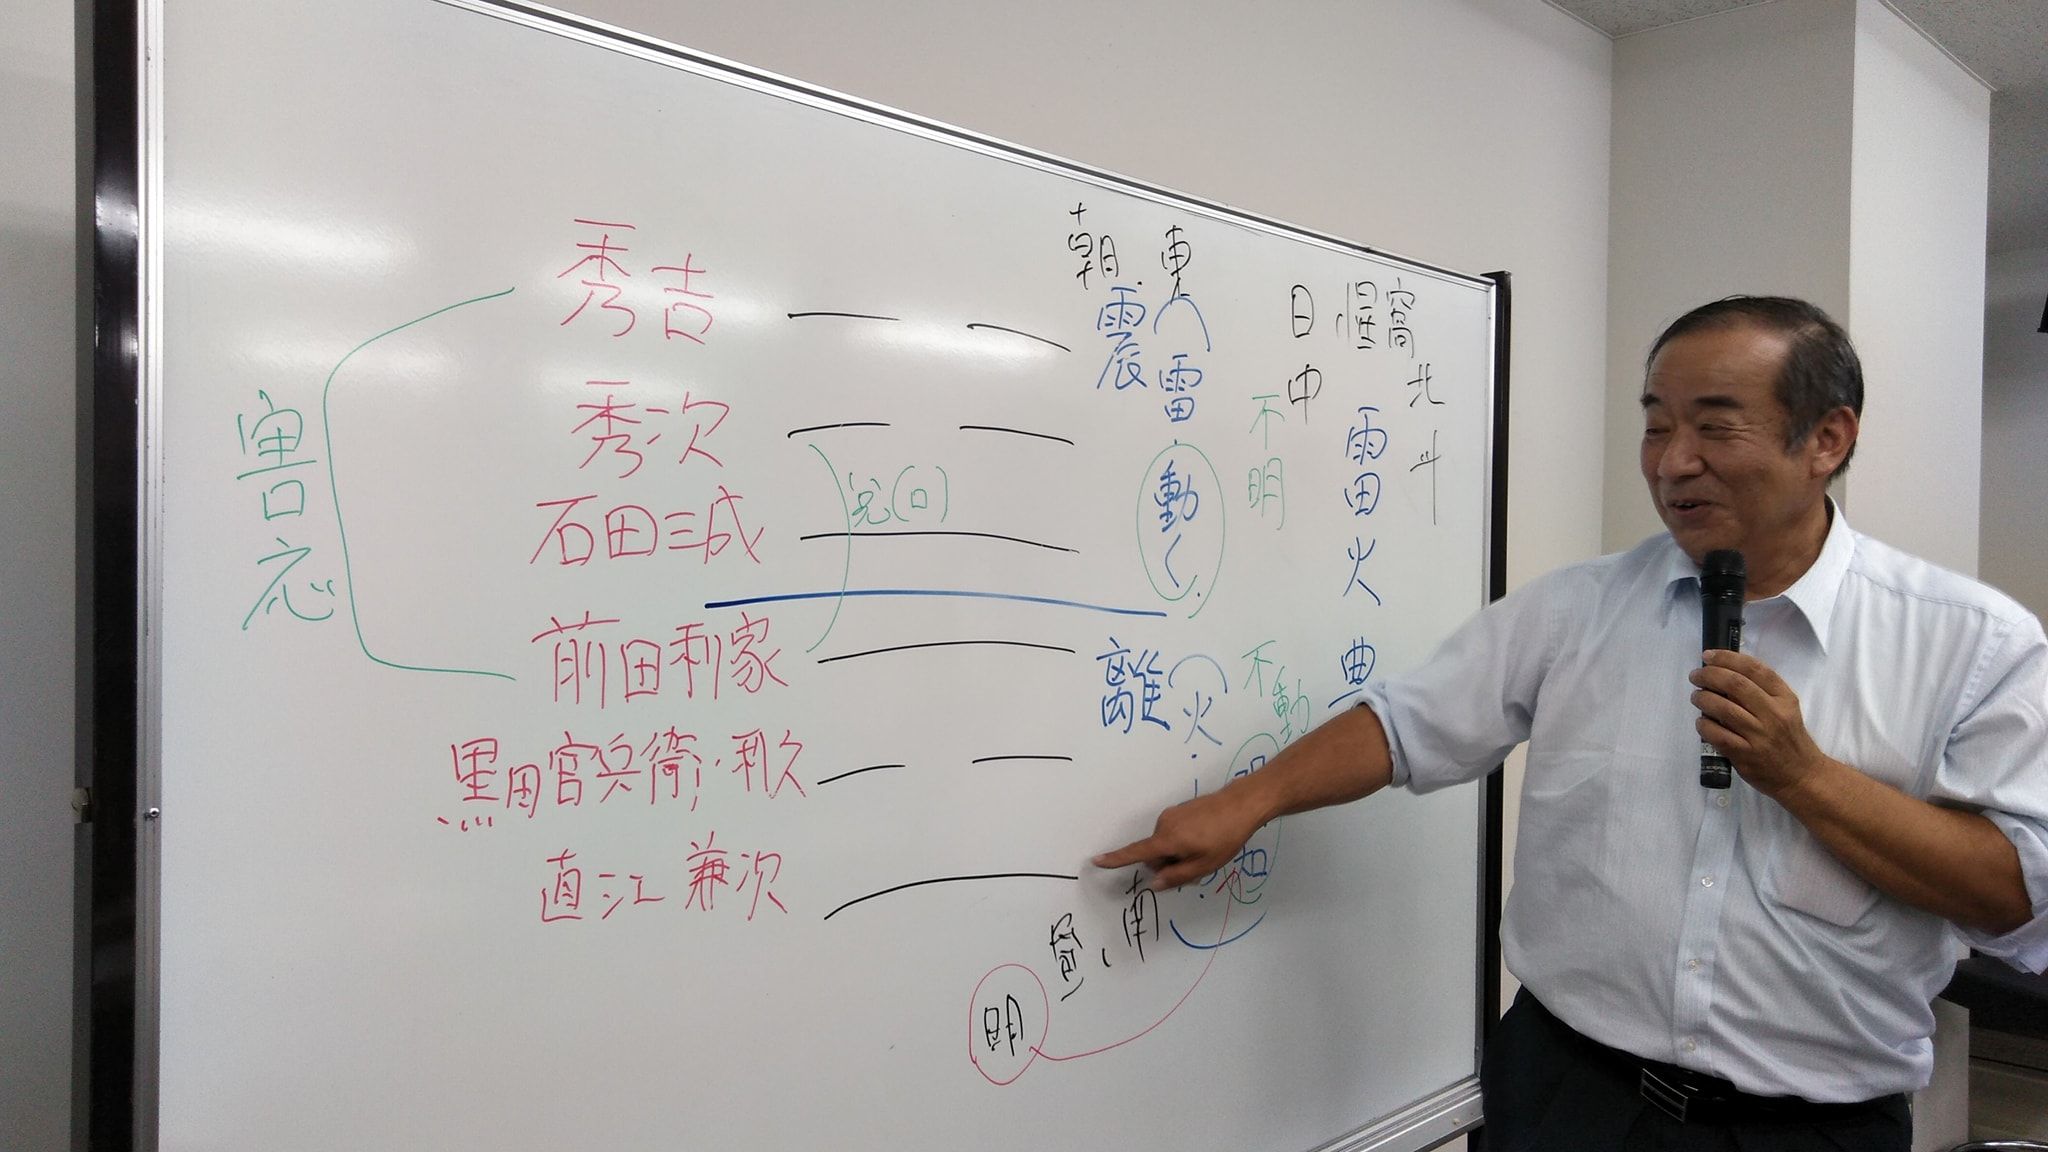 秀吉
秀次
石田三成
前田利家
黒田官兵衛・利久
直江兼次
害応
兌(口)
朝・東
震(雷・動く)
離(火・
南
明
日中
不明
不動
北斗
雷火豊